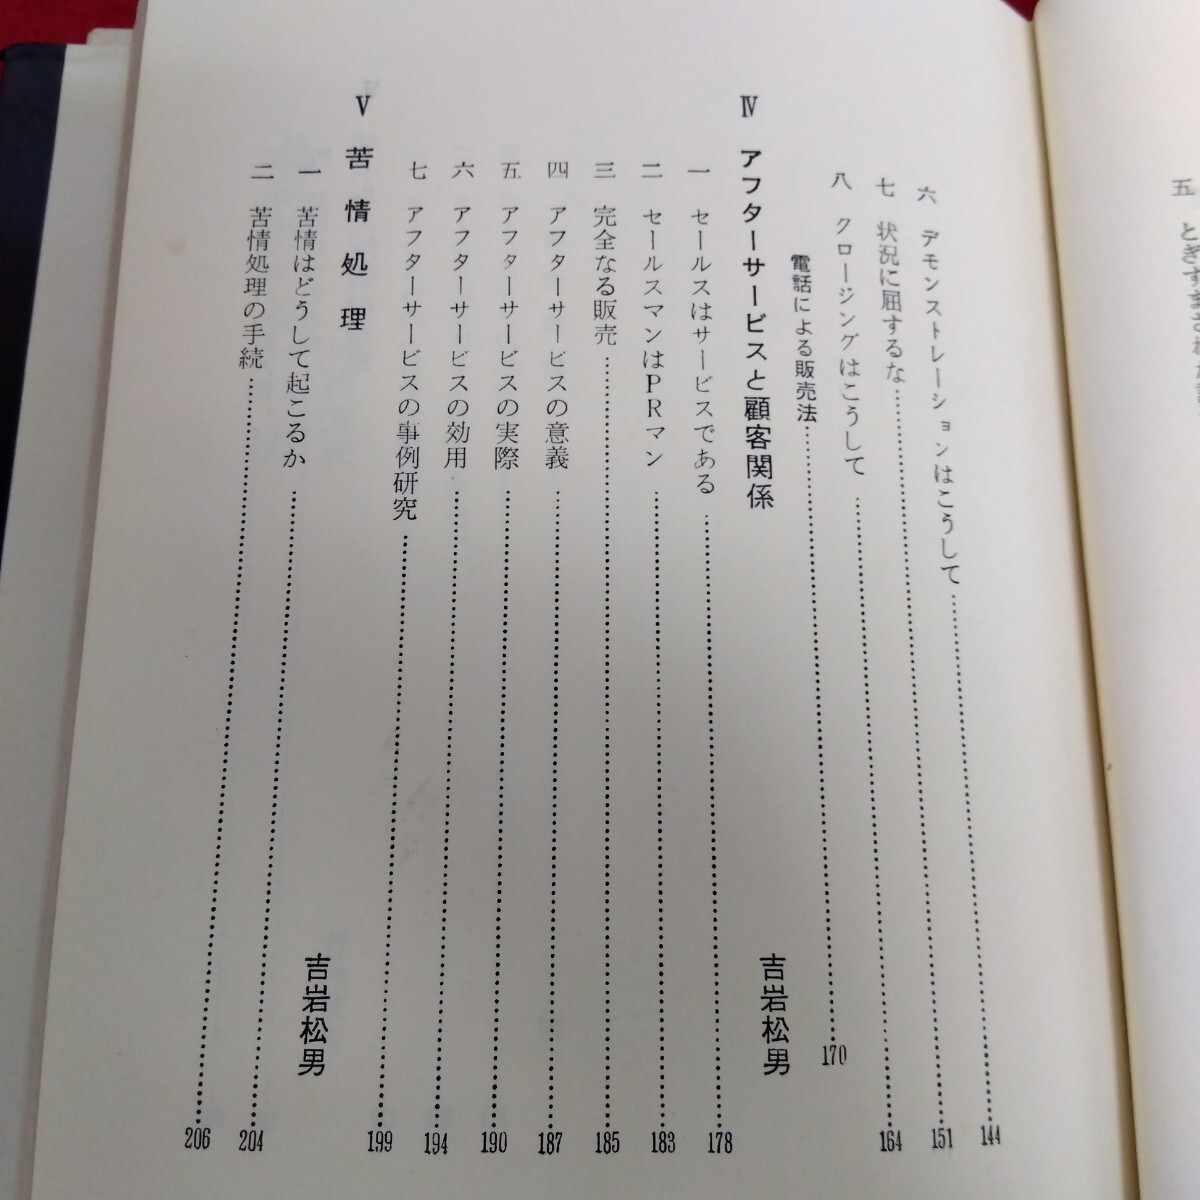 五 とぎすまされた
六 デモンストレーションはこうして……144
七 状況に屈するな……151
八 クロージングはこうして……164
電話による販売法……170
Ⅳ アフターサービスと顧客関係 吉岩松男
一 セールスはサービスである……178
二 セールスマンはPRマン……183
三 完全なる販売……185
四 アフターサービスの意義……187
五 アフターサービスの実際……190
六 アフターサービスの効用……194
七 アフターサービスの事例研究……199
Ⅴ 苦情処理 吉岩松男
一 苦情はどうして起こるか……204
二 苦情処理の手続……206